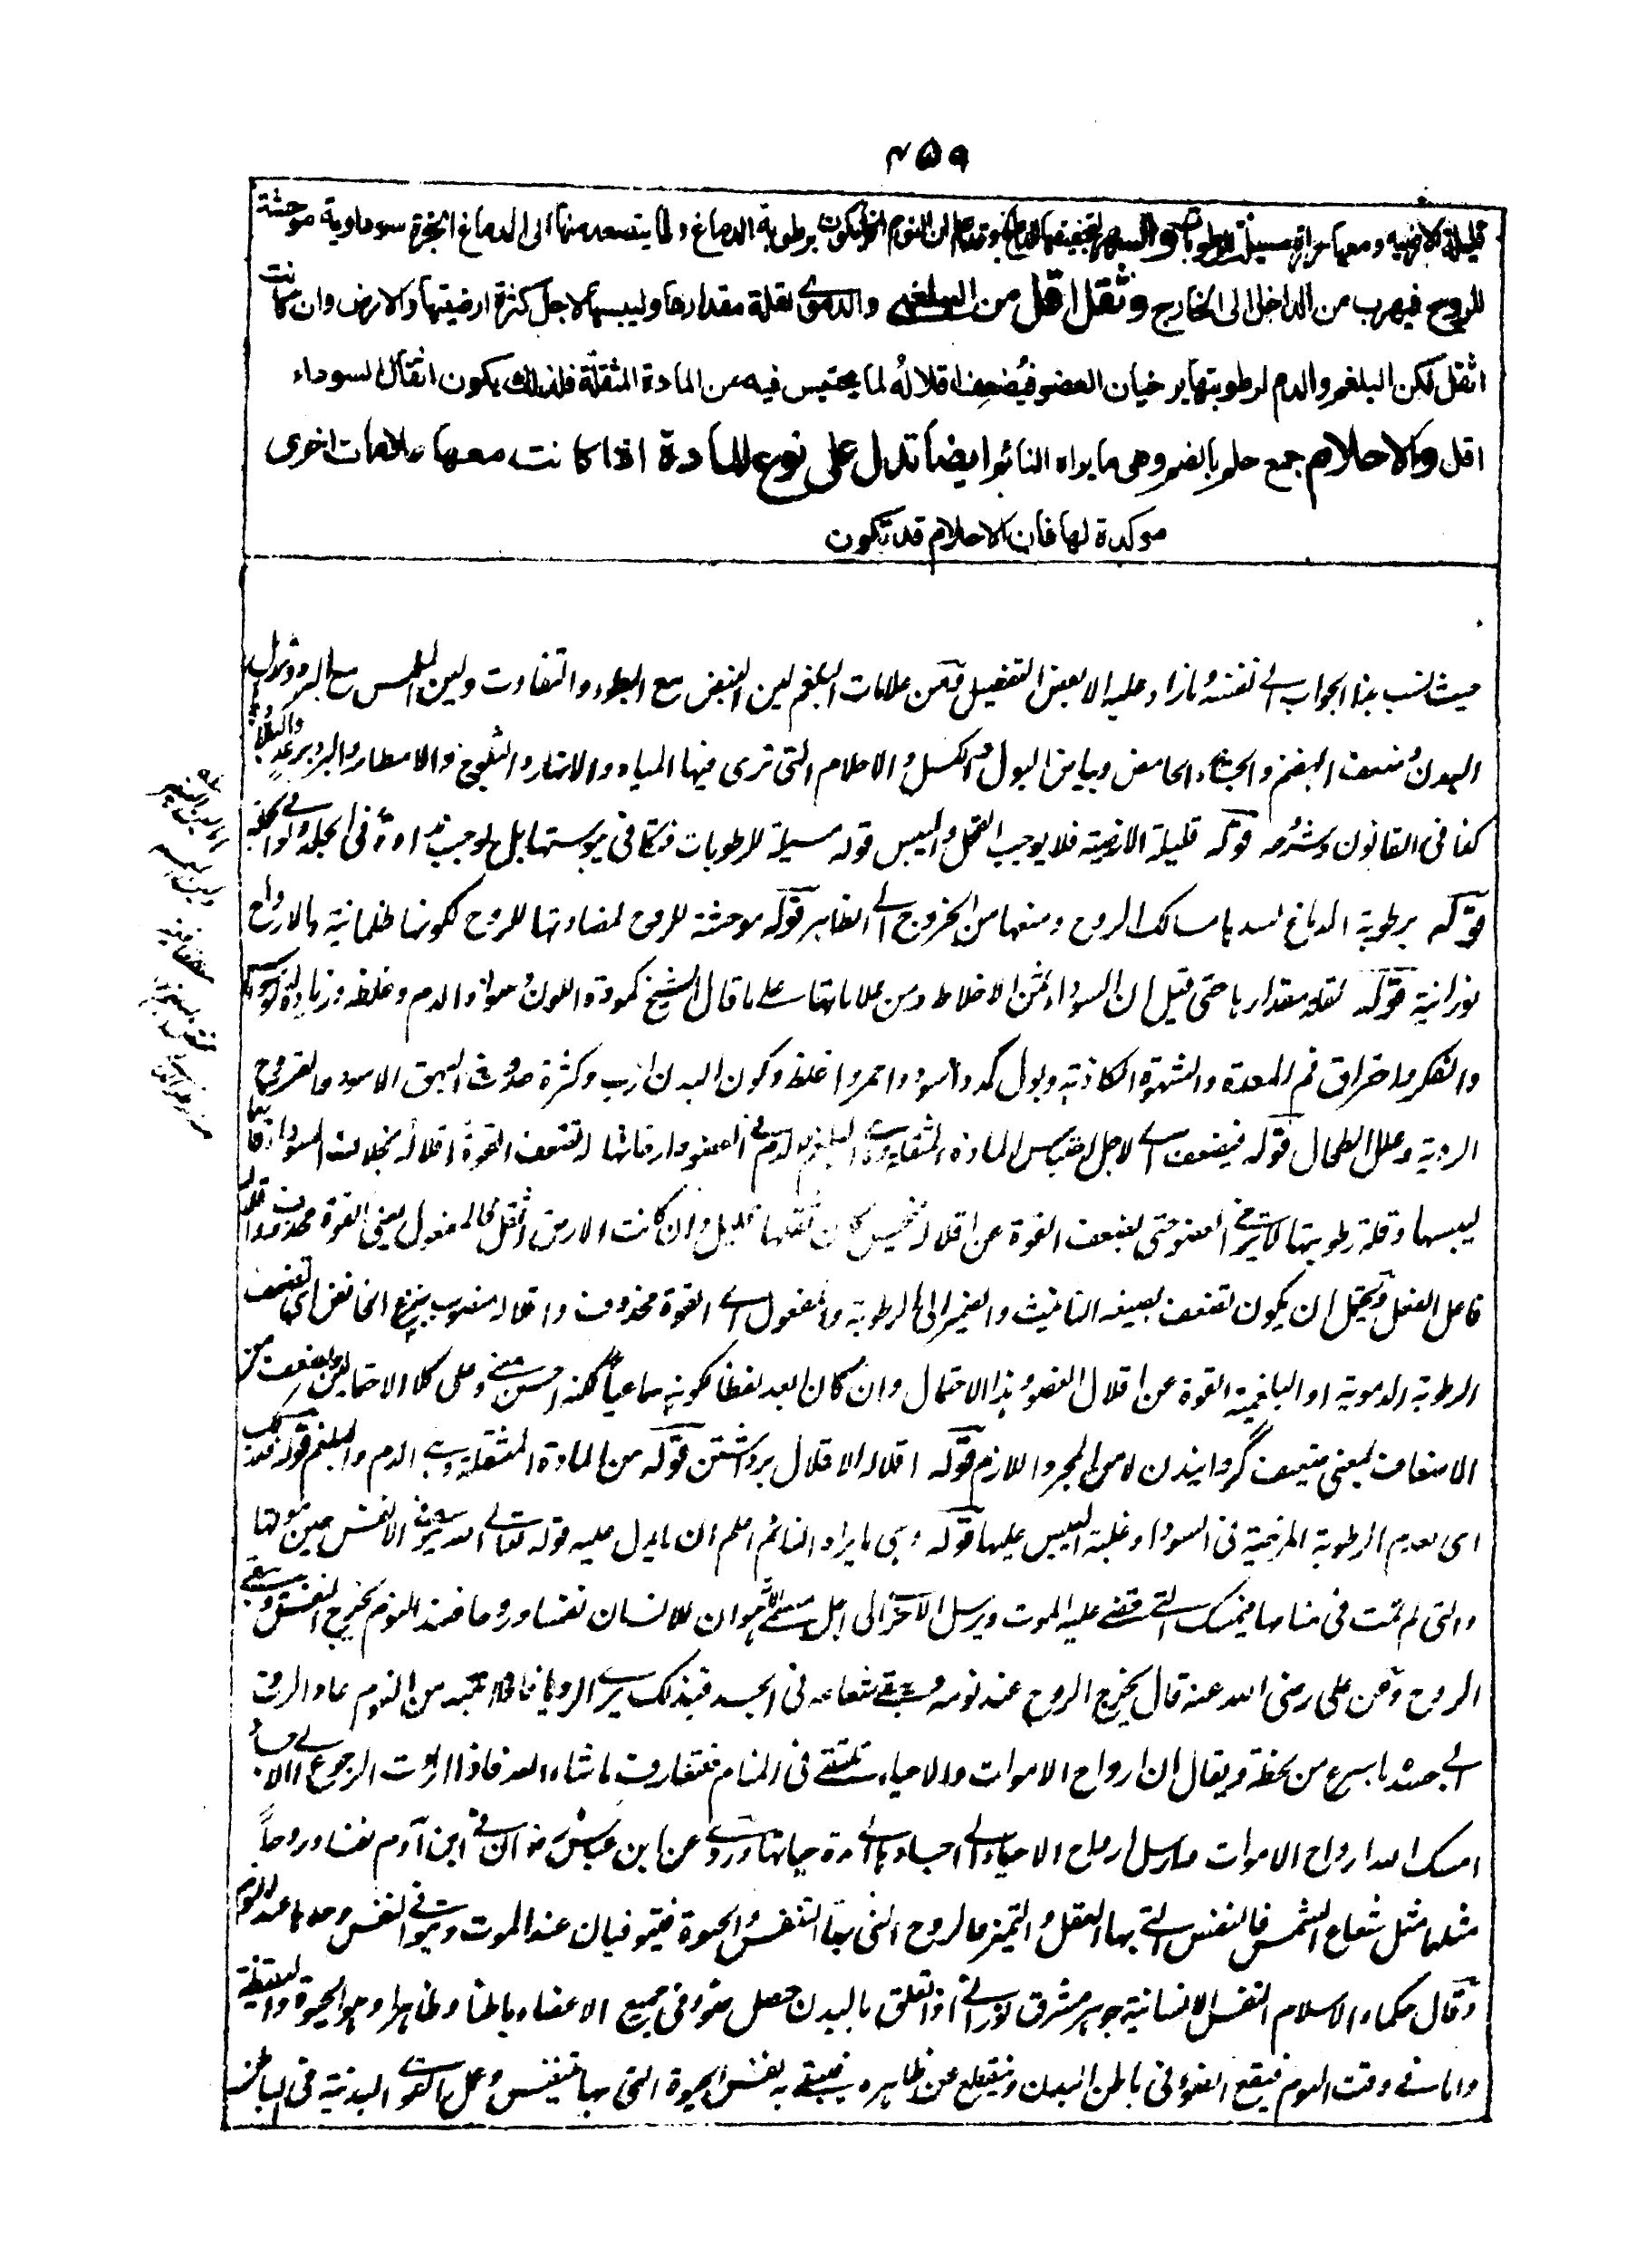 ٤٥٩
قليلة الارضيه ومعها حرارة مسيلة للرطوبات والسهر لتجفيفها الدماغ وقد علم ان النوم انما يكون برطوبة الدماغ ولما يتصعد منها الى الدماغ ابخرة سوداوية موحشة
للروح فيهرب من الداخل الى الخارج وثقل اقل من البلغمى والدموى لقلة مقدارها وليبسها لاجل كثرة ارضيتها والارض وان كانت
اثقل لكن البلغم والدم لرطوبتهما يرخيان العضو فيُضعِف اقلالُه لما يحتبس فيه من المادة المثقلة فلذلك يكون اثقال السوداء
اقل والاحلام جمع حلم بالضم وهى ما يراه النائم ايضا تدل على نوع المادة اذا كانت معها علامات اخرى
موكدة لها فان الاحلام قد تكون
حيث نسب هذا الجواب الى نفسه وما زاد عليه الا بعض التفصيل ومن علامات البلغم لين النبض مع البطوء والتفاوت ولين الملمس مع البرد
البدن وضعف الهضم والجشاء الحامض وبياض البول والكسل والاحلام التى ترى فيها المياه والانهار والثلوج والامطار والبرد برعد
كذا فى القانون وشرحه قوله قليلة الارضية فلا يوجب الثقل واليبس قوله مسيلة للرطوبات فتكافى يبوستها بل توجب نداوة فى الجملة
قوله برطوبة الدماغ لسدها مسالك الروح ومنعها من الخروج الى الظاهر قوله موحشة للروح لمضادتها للروح لكونها ظلمانية والارواح
نورانية قوله لقلة مقدارها حتى قيل ان السوداء ثمن الاخلاط ومن علاماتها على ما قال الشيخ كمودة اللون وسواد الدم وغلظه وزيادة
والفكر واحتراق فم المعدة والشهوة الكاذبة وبول كمد واسود واحمر وغلظ وكون البدن ازب وكثرة حدوث البهق الاسود والقروح
الردية وعلل الطحال قوله فيضعف اى لاجل احتباس المادة المثقلة وهى البلغم والدم فى العضو وارخائها له تضعف القوة اقلاله بخلاف السوداء فانها
ليبسها وقلة رطوبتها لا ترخى العضو حتى يضعف القوة عن اقلاله فيحس كان ثقلها قليل وان كانت الارض اثقل فالمفعول يعنى القوة محذوف
فاعل الفعل ويحتمل ان يكون تضعف بصيغة التانيث والضمير الى الرطوبة والمفعول اى القوة محذوف واقلاله منصوب بنزع الخافض اى تضعف
الرطوبة الدموية او البلغمية القوة عن اقلال العضو وهذا الاحتمال وان كان ابعد لفظا لكونه سماعيا لكنه احسن معنى وعلى كلا الاحتمالين يضعف من
الاضعاف بمعنى ضعيف گردانيدن لا من المجرد اللازم قوله اقلاله الاقلال برداشتن قوله من المادة المثقلة وهى الدم والبلغم قوله فلذلك
اى لعدم الرطوبة المرخية فى السوداء وغلبة اليبس عليها قوله وهى ما يراه النائم اعلم ان ما يدل عليه قوله تعالى الله يتوفى الانفس حين موتها
والتى لم تمت فى منامها فيمسك التى قضى عليها الموت ويرسل الاخرى الى اجل مسمى هو ان للانسان نفسا وروحا فعند النوم يخرج النفس وتبقى
الروح وعن على رضى الله عنه قال يخرج الروح عند نومه ويبقى شعاعه فى الجسد فبذلك يرى الرويا فاذا انتبه من النوم عاد الروح
الى جسده باسرع من لحظة ويقال ان ارواح الاموات والاحياء تلتقى فى المنام فتتعارف ما شاء الله فاذا ارادت الرجوع الى
امسك الله ارواح الاموات وارسل ارواح الاحياء الى اجسادها الى مدة حياتها وروى عن ابن عباس رض ان فى ابن آدم نفسا وروحاً
مثلهما مثل شعاع الشمس فالنفس التى بها العقل والتميز والروح التى بها التنفس والحيوة فيتوفيان عند الموت ويتوفى النفس وحدها عند النوم
وقال حكماء الاسلام النفس الانسانية جوهر مشرق نورانى اذا تعلق بالبدن حصل ضوءه فى جميع الاعضاء باطنا وظاهرا وهو الحيوة واليقظة
واما فى وقت النوم فيقع الضوء فى باطن البدن وينقطع عن ظاهره فيبقى به نفس الحيوة التى بها يتنفس وعمل القوى البدنية فى الباطن